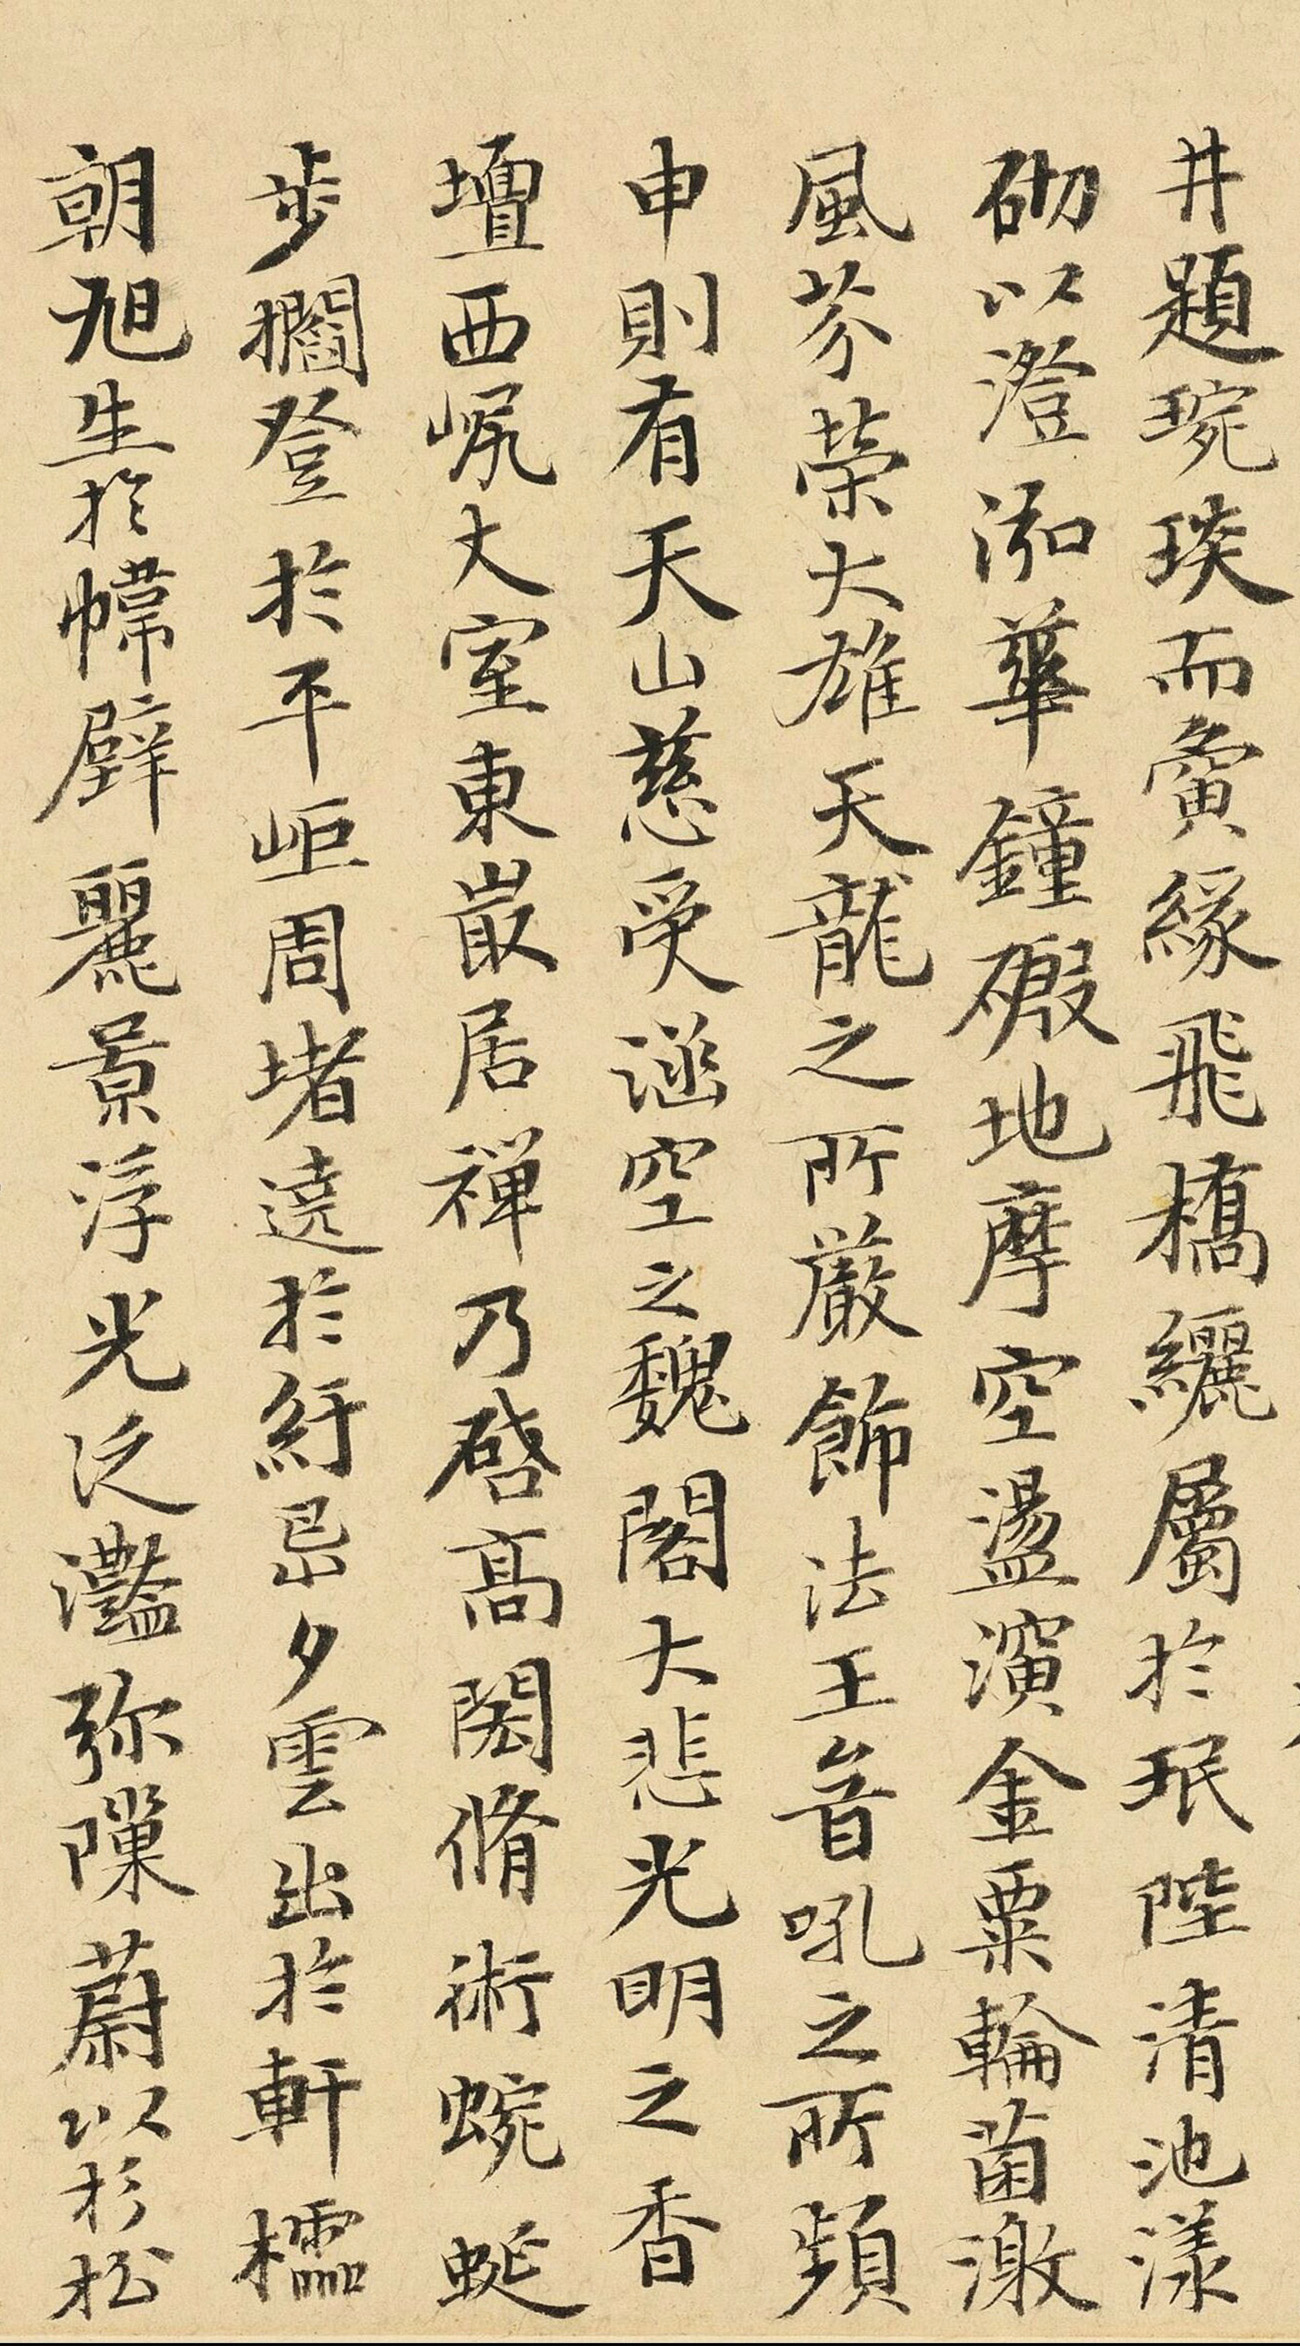 井題琬琰而夤緣飛橋纚屬於珉陸清池漾
砌以澄泓華鐘礟地摩空盪演金粟輪菌激
風芬榮大雄天龍之所嚴飾法王音吼之所頻
申則有天山慈受涵空之巍閣大悲光明之香
壇西㞦大室東㝡居禪乃啓高閎脩術蜿蜒
步櫩登於平岠周堵遶於紆岊夕雲出於軒櫺
朝旭生於幃壁麗景浮光泛灔弥隟蔚以杉松